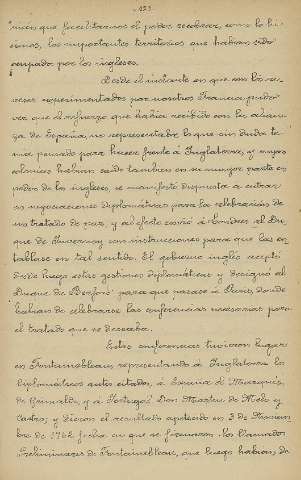 - 123 -
nico que facilitarnos el poder recobrar, como lo hi-
cimos, los importantes territorios que habían sido
ocupado por los ingleses.
Desde el instante en que con los re-
veses experimentados por nosotros Francia pudo
ver que el refuerzo que había recibido con la alian-
za de España, no representaba lo que sin duda te-
nía pensado para hacer frente á Inglaterra, y cuyas
colonias habían caido tambien en su mayor parte en
poder de los ingleses, se manifestó dispuesta a entrar
en negociaciones diplomáticas para la celebración de
un tratado de paz, y al efecto envió á Londres al Du-
que de Nivernoy con instrucciones para que las en-
tablase en tal sentido. El gobierno inglés aceptó
desde luego estas gestiones diplomáticas y designó al
Duque de Bedford para que pasase á Paris, donde
habian de celebrarse las conferencias necesarias para
el tratado que se deseaba.
Estas conferencias tuvieron lugar
en Fontainebleau, representando á Inglaterra los
diplomáticos antes citados, á España el Marqués
de Grimaldi, y á Portugal Don Martin de Melo y
Castro, y dieron el resultado apetecido en 3 de Noviem-
bre de 1762 fecha en que se firmaron los llamados
Preliminares de Fontainebleau, que luego habían de